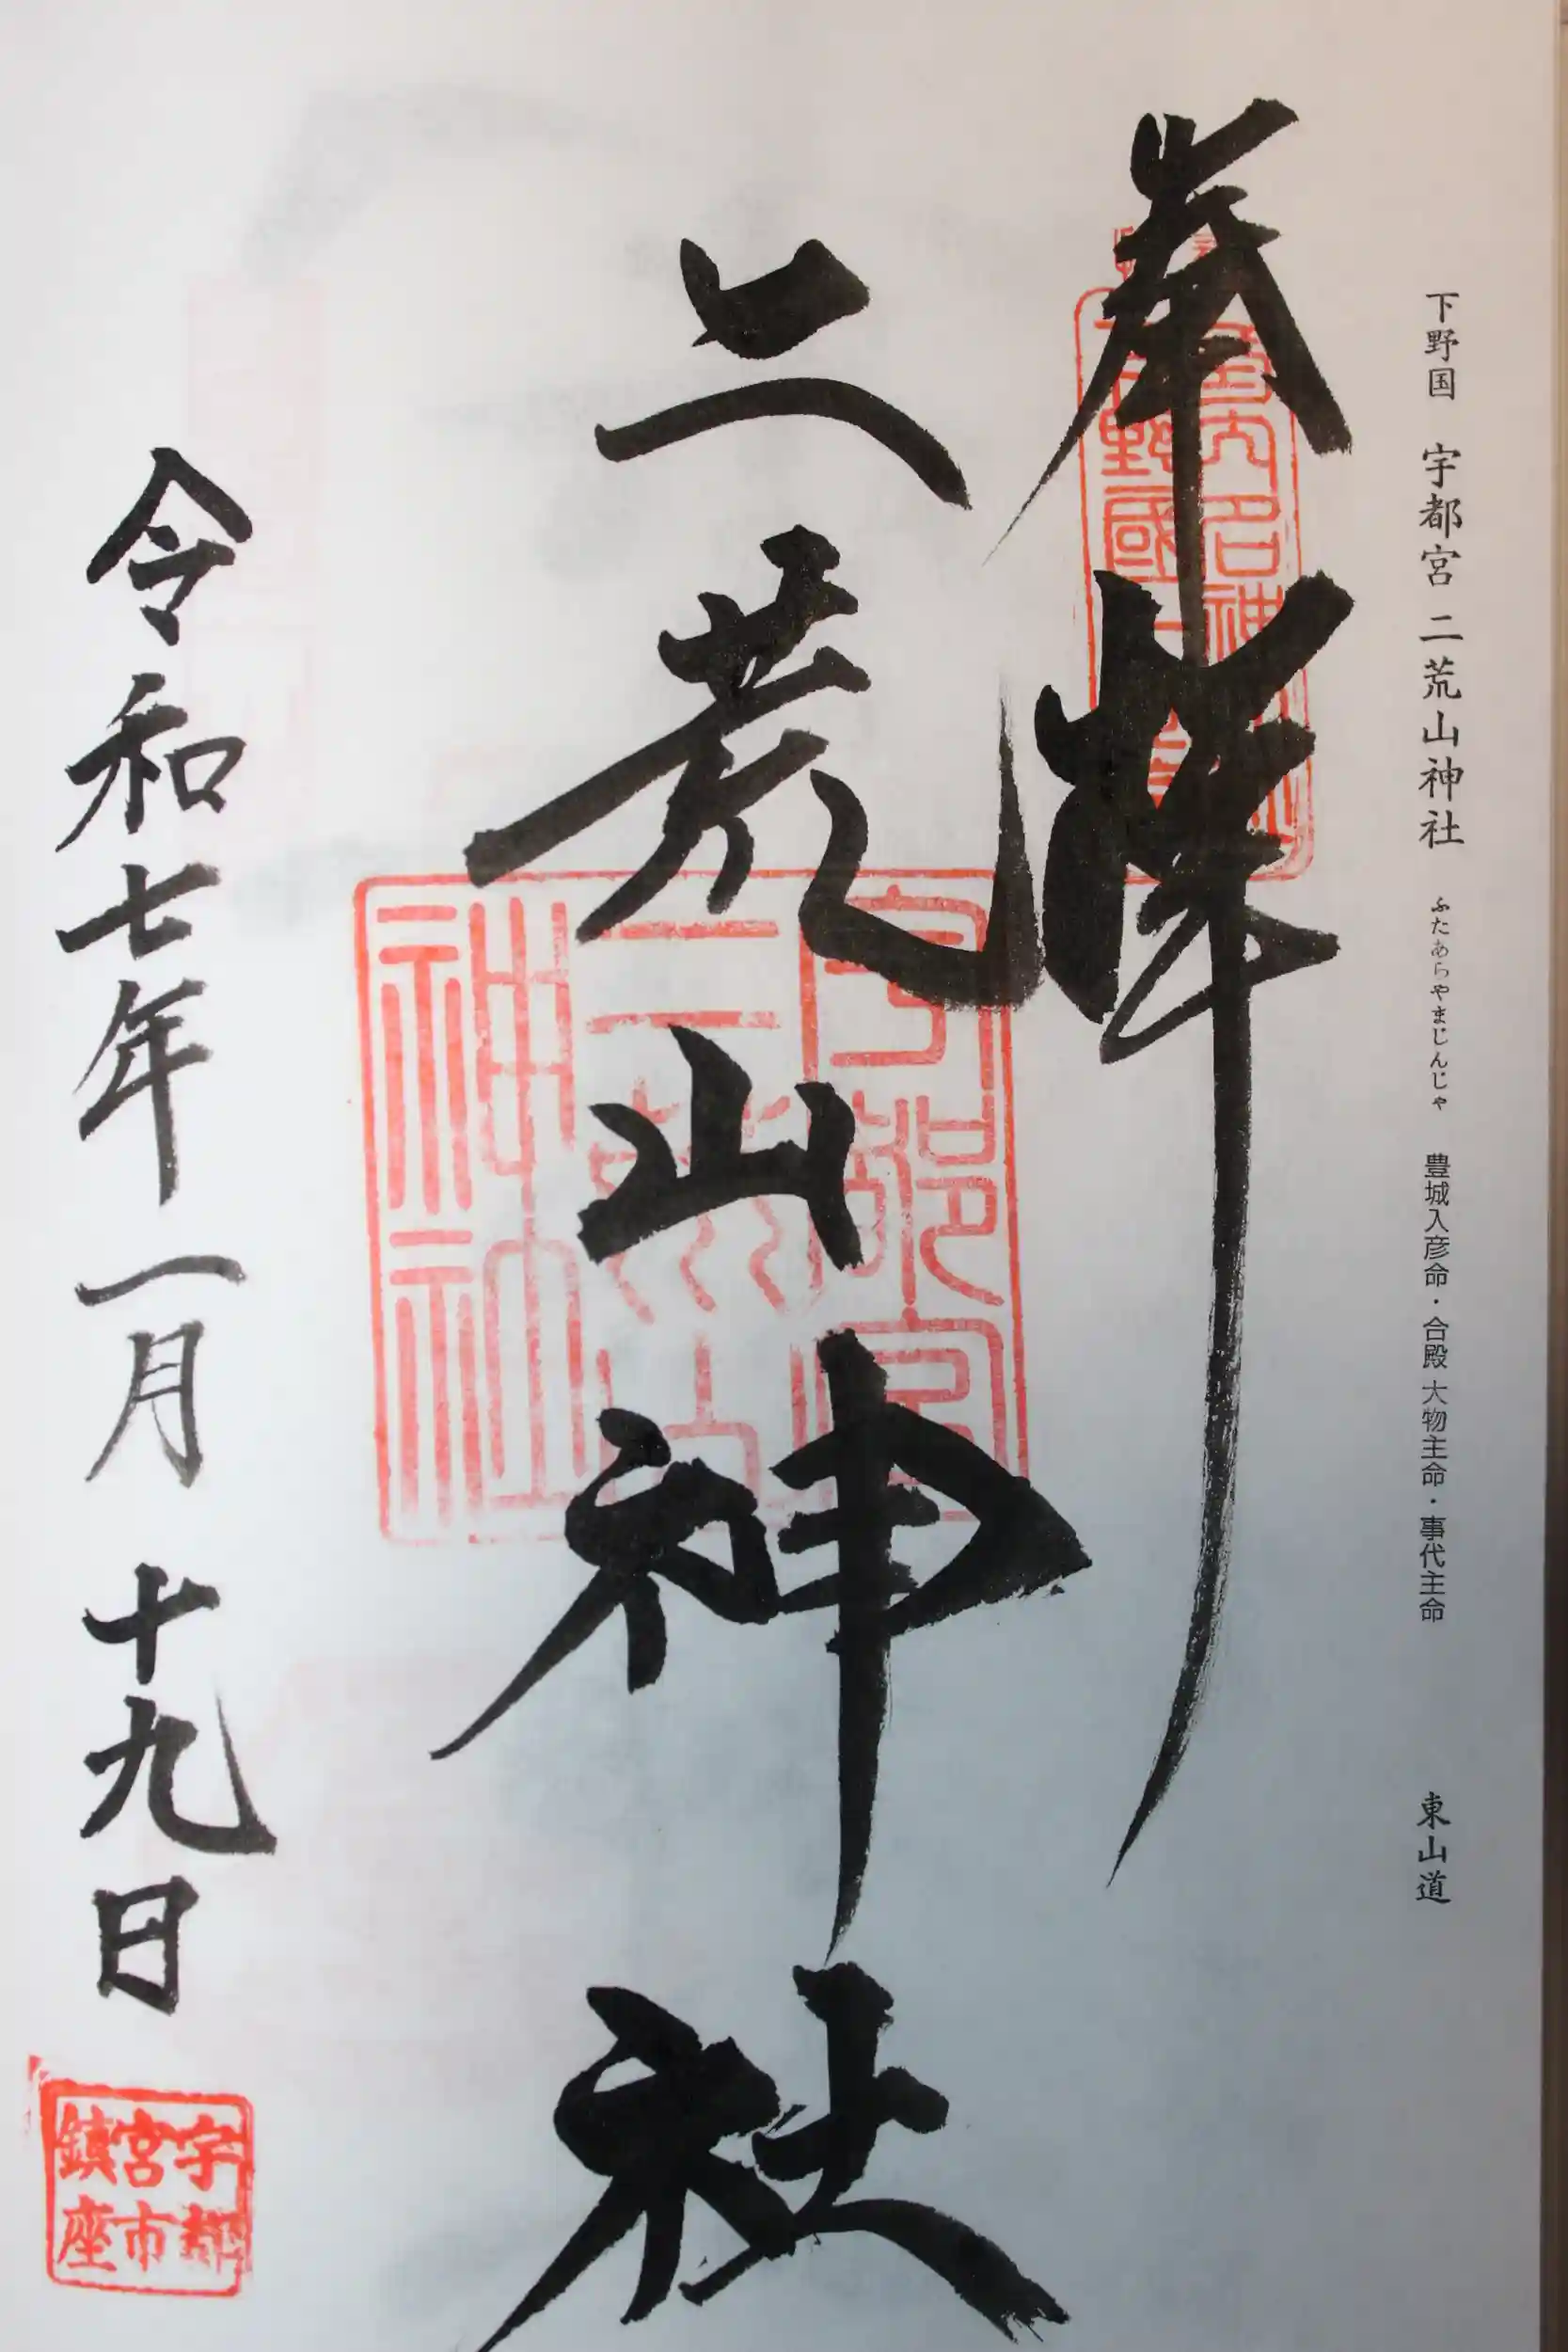 下野国 宇都宮 二荒山神社 ふたあらやまじんじゃ 豊城入彦命・合殿 大物主命・事代主命 東山道
奉拝
二荒山神社
宇都宮
二荒山
神社
令和七年一月十九日
宇都
宮市
鎮座